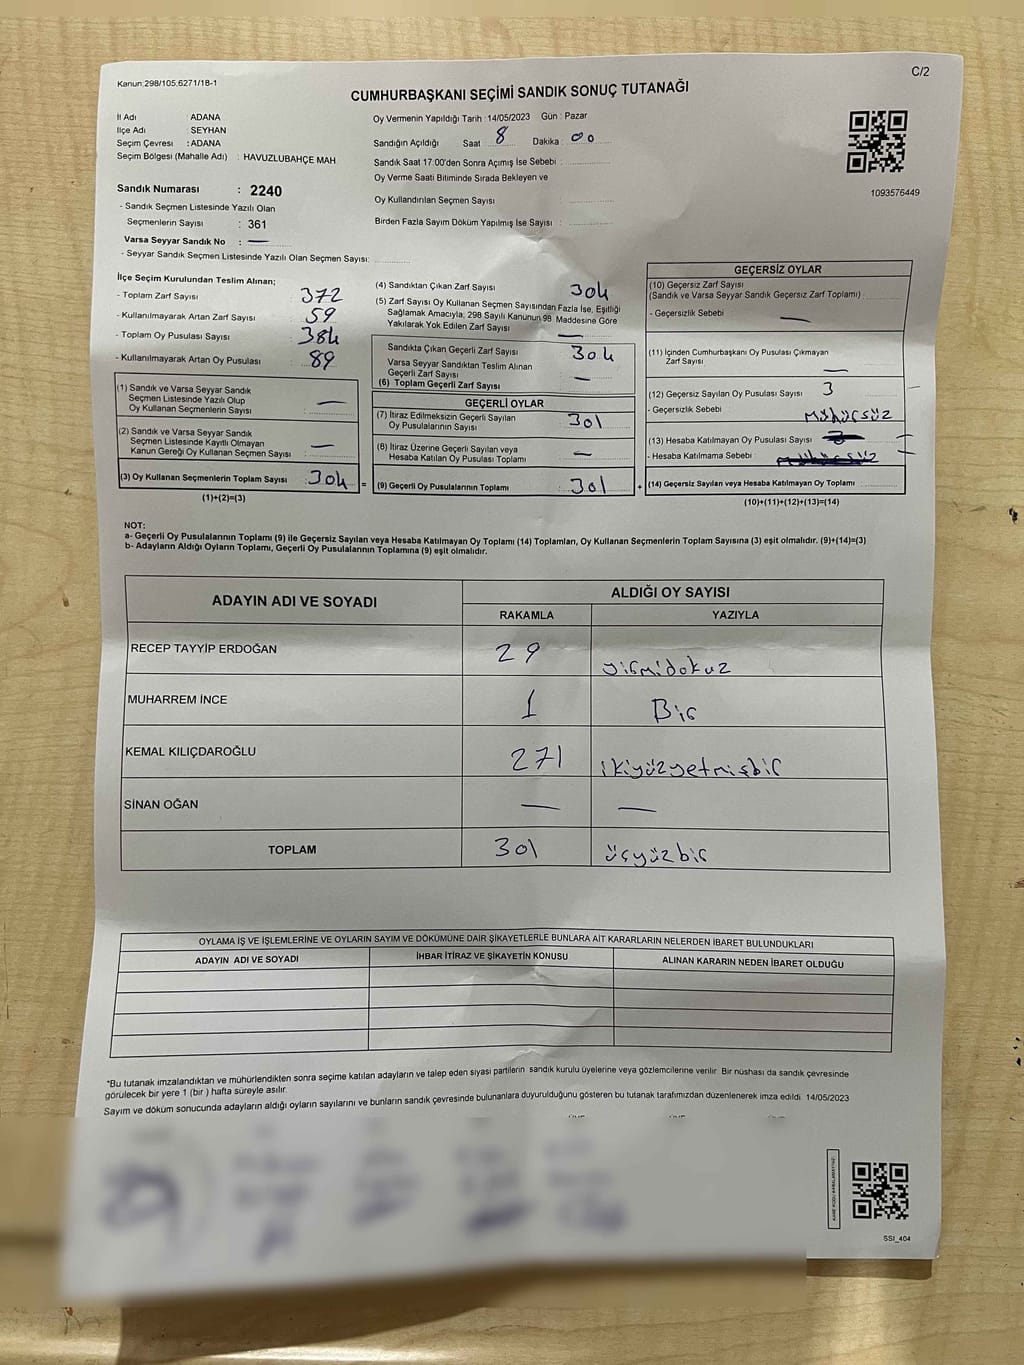 Kanun:298/105.6271/18-1
C/2
CUMHURBAŞKANI SEÇİMİ SANDIK SONUÇ TUTANAĞI
İl Adı : ADANA
İlçe Adı : SEYHAN
Seçim Çevresi : ADANA
Seçim Bölgesi (Mahalle Adı) : HAVUZLUBAHÇE MAH
Sandık Numarası : 2240
- Sandık Seçmen Listesinde Yazılı Olan
Seçmenlerin Sayısı : 361
Varsa Seyyar Sandık No : —
- Seyyar Sandık Seçmen Listesinde Yazılı Olan Seçmen Sayısı:
Oy Vermenin Yapıldığı Tarih : 14/05/2023 Gün : Pazar
Sandığın Açıldığı Saat : 8 Dakika : 00
Sandık Saat 17:00'den Sonra Açımış İse Sebebi :
Oy Verme Saati Bitiminde Sırada Bekleyen ve
Oy Kullandırılan Seçmen Sayısı :
Birden Fazla Sayım Döküm Yapılmış İse Sayısı :
1093576449
İlçe Seçim Kurulundan Teslim Alınan;
- Toplam Zarf Sayısı : 372
- Kullanılmayarak Artan Zarf Sayısı : 59
- Toplam Oy Pusulası Sayısı : 384
- Kullanılmayarak Artan Oy Pusulası : 89
(1) Sandık ve Varsa Seyyar Sandık
Seçmen Listesinde Yazılı Olup
Oy Kullanan Seçmenlerin Sayısı : —
(2) Sandık ve Varsa Seyyar Sandık
Seçmen Listesinde Kayıtlı Olmayan
Kanun Gereği Oy Kullanan Seçmen Sayısı : —
(3) Oy Kullanan Seçmenlerin Toplam Sayısı : 304
(1)+(2)=(3)
(4) Sandıktan Çıkan Zarf Sayısı : 304
(5) Zarf Sayısı Oy Kullanan Seçmen Sayısından Fazla İse, Eşitliği
Sağlamak Amacıyla; 298 Sayılı Kanunun 98. Maddesine Göre
Yakılarak Yok Edilen Zarf Sayısı : —
Sandıkta Çıkan Geçerli Zarf Sayısı : 304
Varsa Seyyar Sandıktan Teslim Alınan
Geçerli Zarf Sayısı : —
(6) Toplam Geçerli Zarf Sayısı
GEÇERLİ OYLAR
(7) İtiraz Edilmeksizin Geçerli Sayılan
Oy Pusulalarının Sayısı : 301
(8) İtiraz Üzerine Geçerli Sayılan veya
Hesaba Katılan Oy Pusulası Toplamı : —
= (9) Geçerli Oy Pusulalarının Toplamı : 301 +
GEÇERSİZ OYLAR
(10) Geçersiz Zarf Sayısı
(Sandık ve Varsa Seyyar Sandık Geçersiz Zarf Toplamı) :
- Geçersizlik Sebebi : —
(11) İçinden Cumhurbaşkanı Oy Pusulası Çıkmayan
Zarf Sayısı : —
(12) Geçersiz Sayılan Oy Pusulası Sayısı : 3
- Geçersizlik Sebebi : Mühürsüz
(13) Hesaba Katılmayan Oy Pusulası Sayısı :
- Hesaba Katılmama Sebebi :
(14) Geçersiz Sayılan veya Hesaba Katılmayan Oy Toplamı :
(10)+(11)+(12)+(13)=(14)
NOT:
a- Geçerli Oy Pusulalarının Toplamı (9) ile Geçersiz Sayılan veya Hesaba Katılmayan Oy Toplamı (14) Toplamları, Oy Kullanan Seçmenlerin Toplam Sayısına (3) eşit olmalıdır. (9)+(14)=(3)
b- Adayların Aldığı Oyların Toplamı, Geçerli Oy Pusulalarının Toplamına (9) eşit olmalıdır.
ADAYIN ADI VE SOYADI
ALDIĞI OY SAYISI
RAKAMLA YAZIYLA
RECEP TAYYİP ERDOĞAN 29 yirmidokuz
MUHARREM İNCE 1 Bir
KEMAL KILIÇDAROĞLU 271 ikiyüzyetmişbir
SİNAN OĞAN — —
TOPLAM 301 üçyüzbir
OYLAMA İŞ VE İŞLEMLERİNE VE OYLARIN SAYIM VE DÖKÜMÜNE DAİR ŞİKAYETLERLE BUNLARA AİT KARARLARIN NELERDEN İBARET BULUNDUKLARI
ADAYIN ADI VE SOYADI İHBAR İTİRAZ VE ŞİKAYETİN KONUSU ALINAN KARARIN NEDEN İBARET OLDUĞU
*Bu tutanak imzalandıktan ve mühürlendikten sonra seçime katılan adayların ve talep eden siyasi partilerin sandık kurulu üyelerine veya gözlemcilerine verilir. Bir nüshası da sandık çevresinde
görülecek bir yere 1 (bir ) hafta süreyle asılır.
Sayım ve döküm sonucunda adayların aldığı oyların sayılarını ve bunların sandık çevresinde bulunanlara duyurulduğunu gösteren bu tutanak tarafımızdan düzenlenerek imza edildi. 14/05/2023
SSI_404